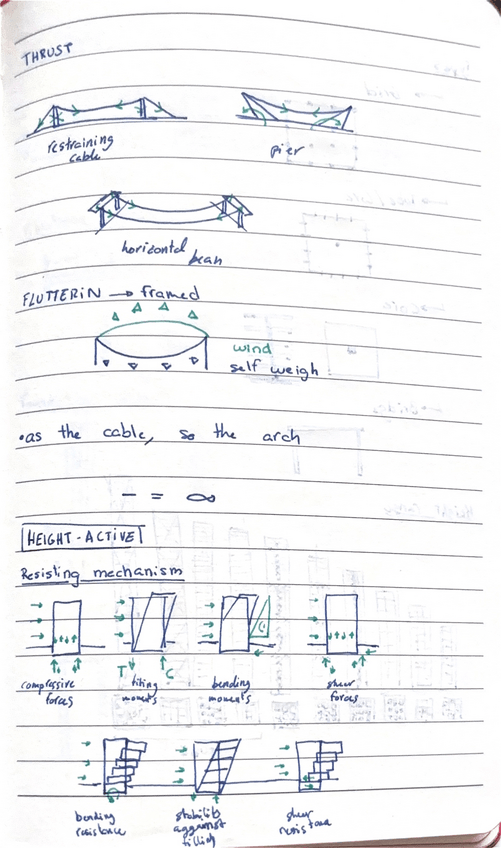 THRUST
restraining
cable
pier
horizontal
beam
FLUTTERIN → framed
wind
self weigh
•as the cable, so the arch
— = ∞
HEIGHT-ACTIVE
Resisting mechanism
T C
compressive
forces
tilting
moments
bending
moments
shear
forces
bending
resistance
stability
aggainst
shear